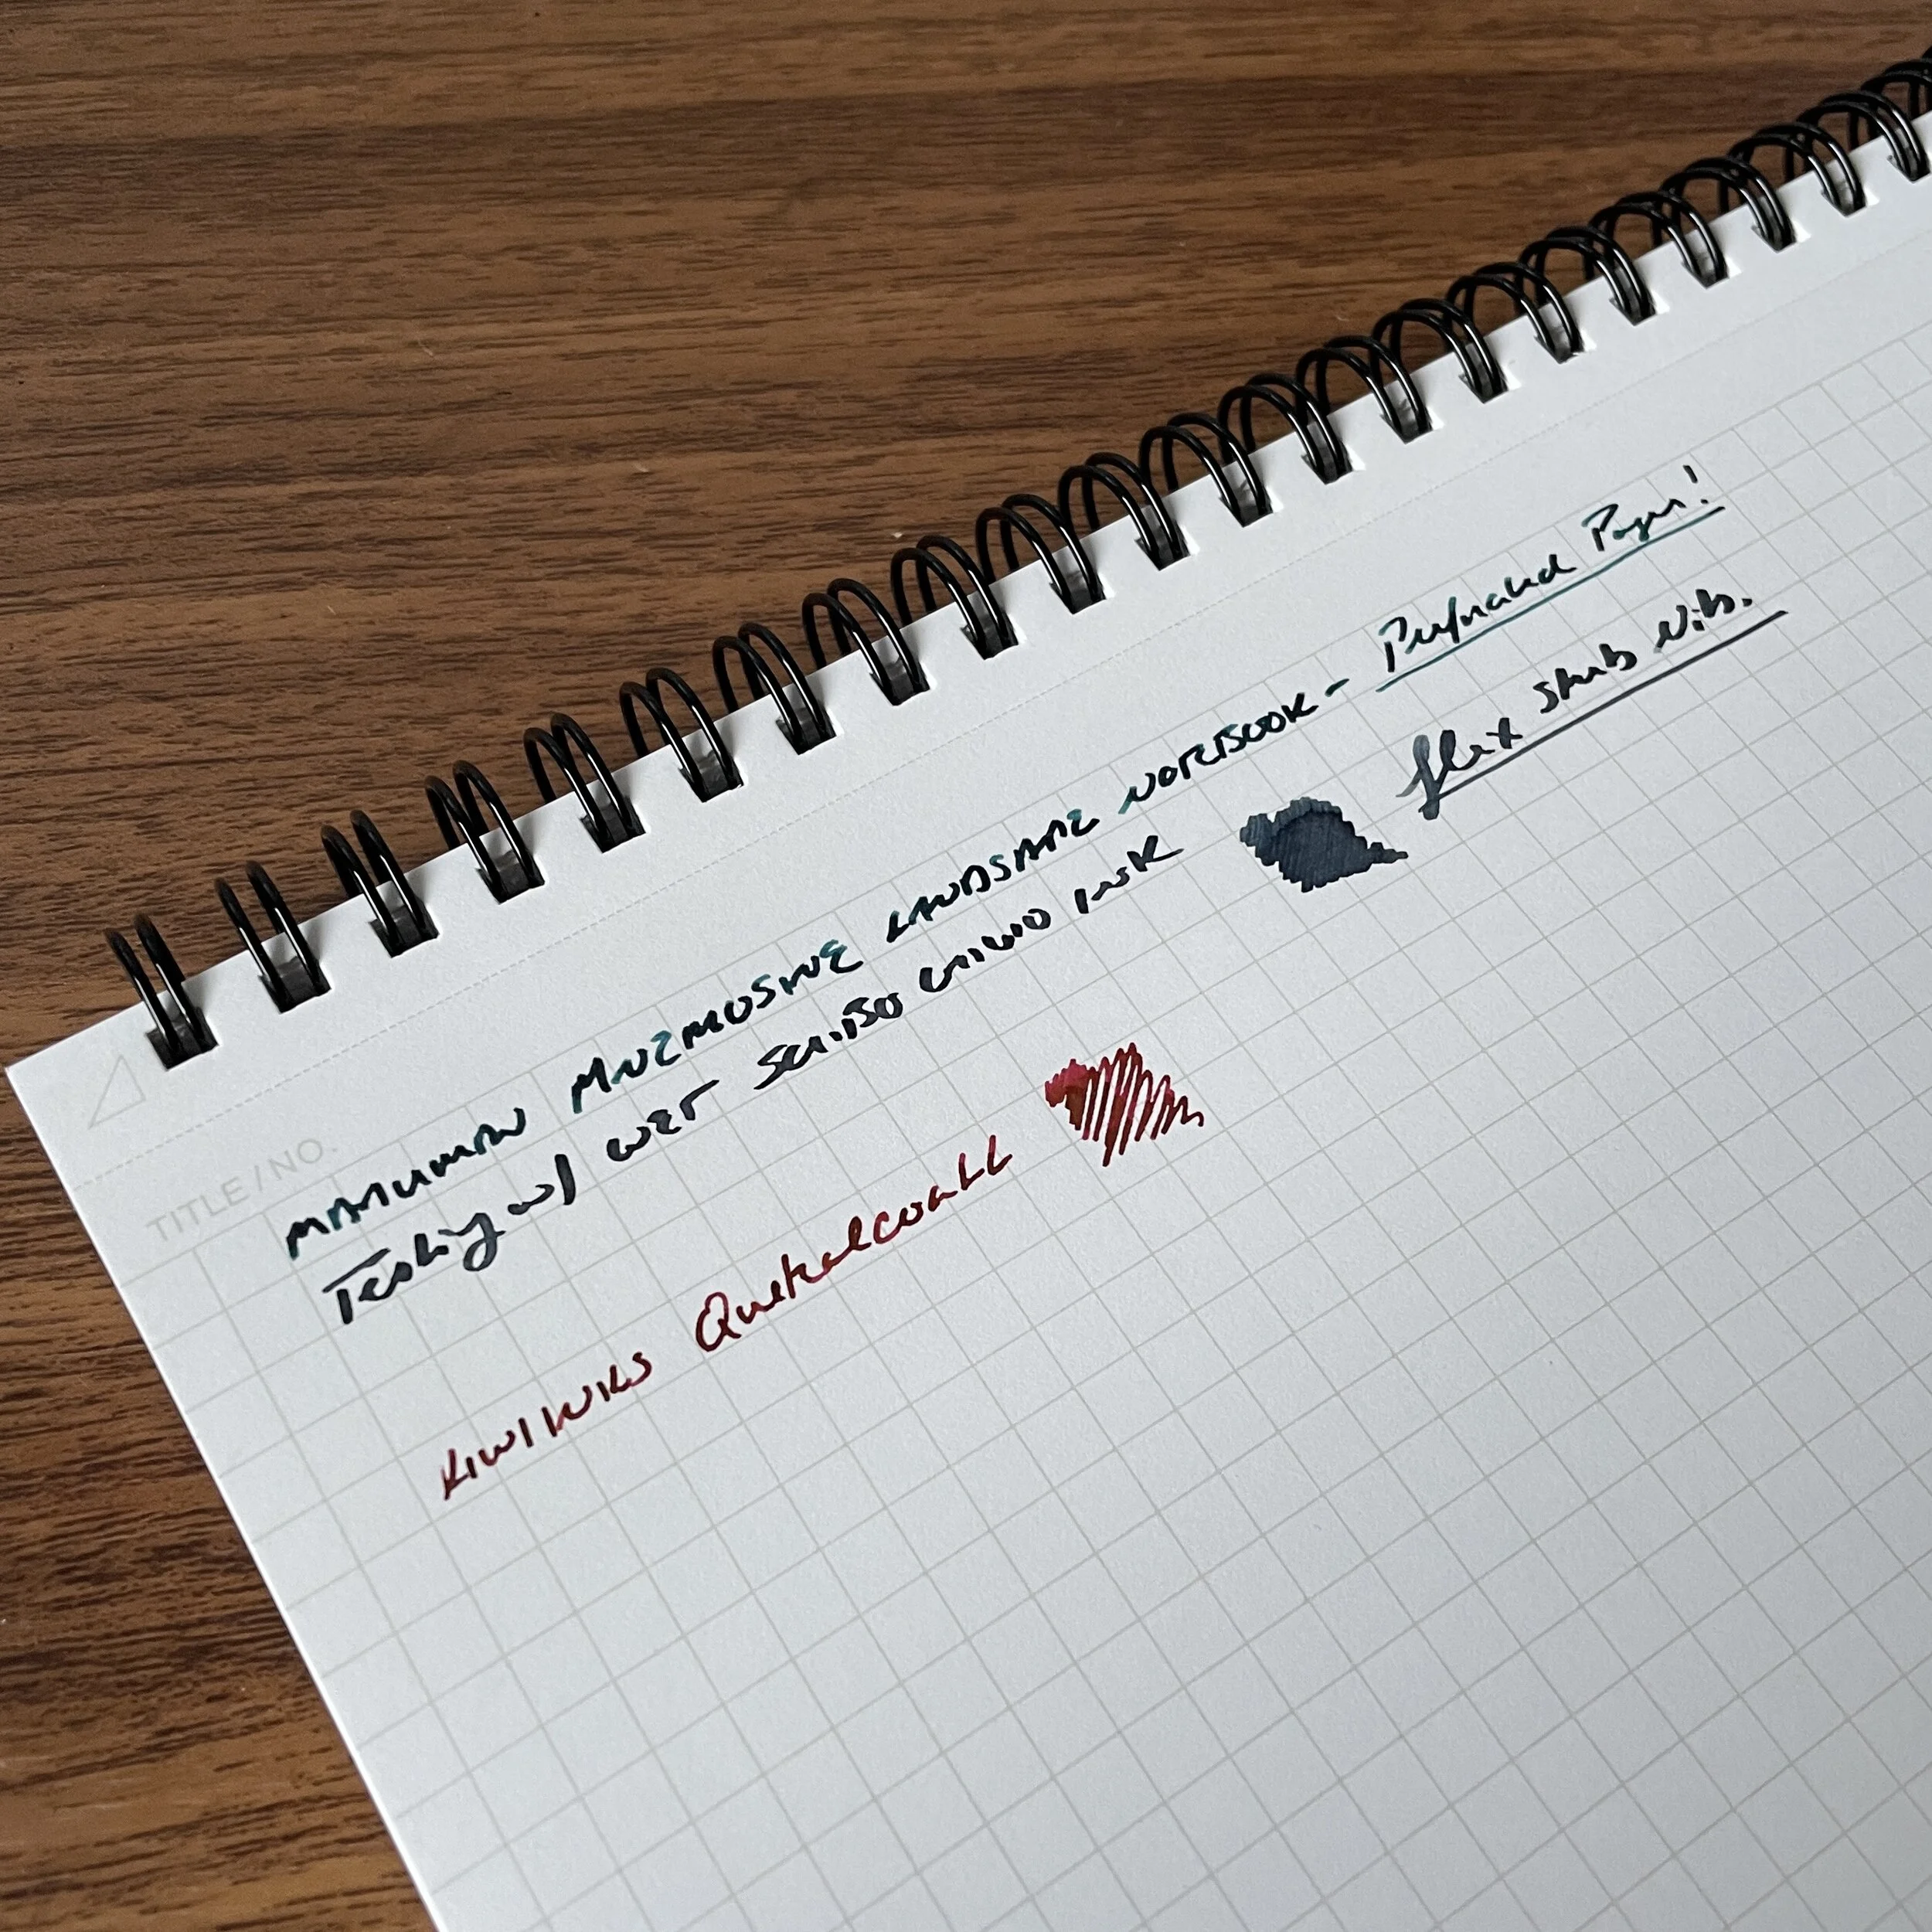 TITLE/NO.
MARUMAN MNEMOSYNE LANDSAPE NOTEBOOK - Perforated Pages!
Testing w/ WET SCRIBO INK flex stub Nib.
KIWI INKS Quetzalcoatl